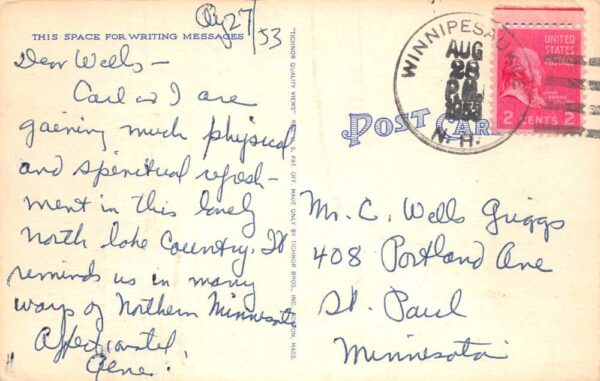 Aug 27/53
THIS SPACE FOR WRITING MESSAGES
Dear Wells –
Carl & I are
gaining much physical
and spiritual refresh-
ment in this lovely
North lake Country. It
reminds us in many
ways of Northern Minnesota
Affectionately
Gene.
"TICHNOR QUALITY VIEWS" REG. U. S. PAT. OFF. MADE ONLY BY TICHNOR BROS., INC., BOSTON, MASS.
POST CARD
WINNIPESAUKEE
AUG
28
P.M.
1953
N.H.
UNITED
STATES
POSTAGE
JOHN ADAMS
2 CENTS 2
Mr. C. Wells Griggs
408 Portland Ave
St. Paul
Minnesota